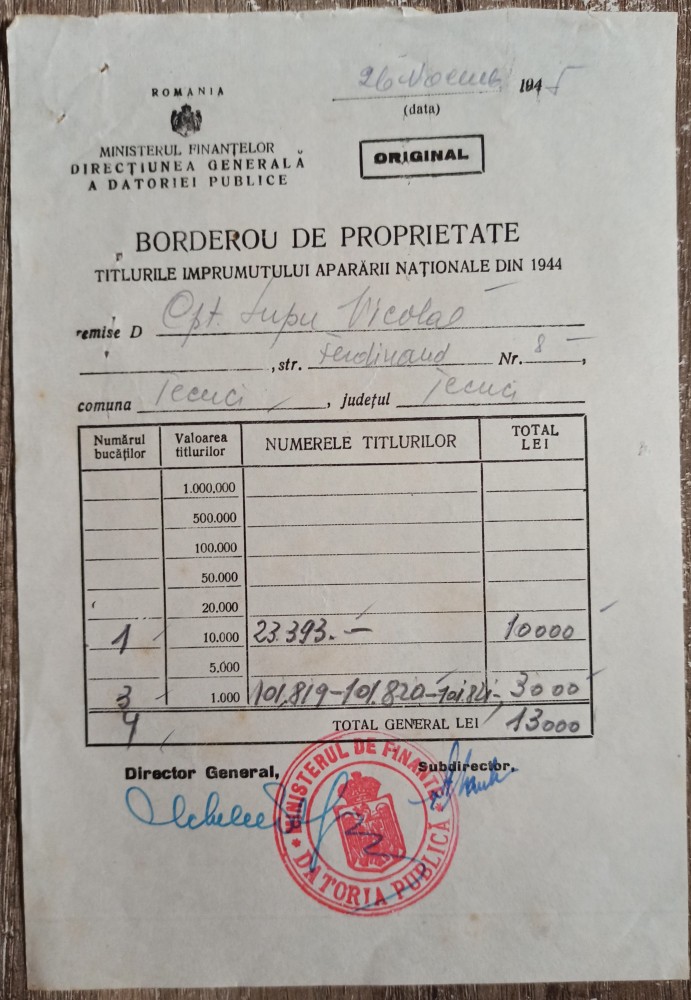 ROMANIA
MINISTERUL FINANȚELOR
DIRECȚIUNEA GENERALĂ
A DATORIEI PUBLICE
26 Noemb 1945
(data)
ORIGINAL
BORDEROU DE PROPRIETATE
TITLURILE IMPRUMUTULUI APARĂRII NAȚIONALE DIN 1944
remise D Cpt. Lupu Nicolae
, str. Ferdinand Nr. 8 ,
comuna Tecuci , județul Tecuci
Numărul bucăților Valoarea titlurilor NUMERELE TITLURILOR TOTAL LEI
1.000,000
500.000
100.000
50.000
20,000
1 10.000 23.393.- 10000
5.000
3 1.000 101.819-101.820-101.821- 3000
4 TOTAL GENERAL LEI 13000
Director General, Subdirector,
MINISTERUL DE FINANȚE
DATORIA PUBLICĂ